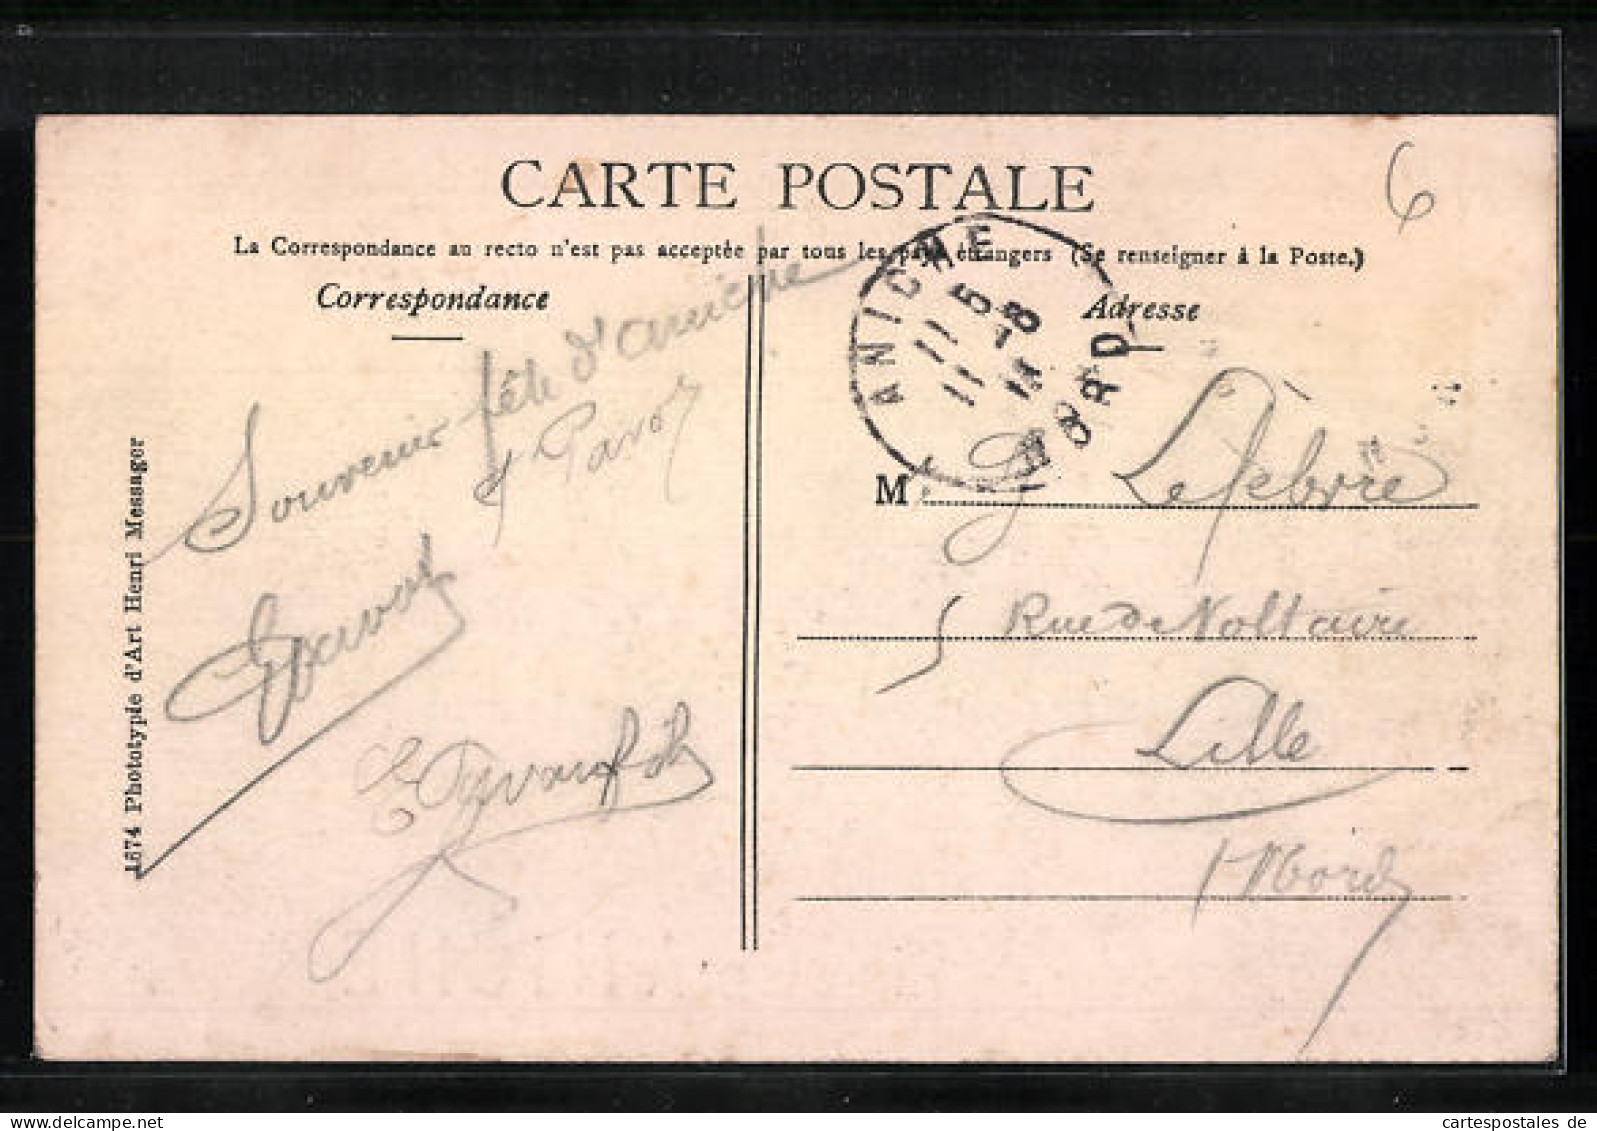 6
CARTE POSTALE
La Correspondance au recto n'est pas acceptée par tous les pays étrangers (Se renseigner à la Poste.)
Correspondance
Adresse
ANICHE
5 -8
NORD
Souvenir fête d'aniche
M Lefebvre
5 Rue de Voltaire
Lille
Nord
1674 Phototypie d'Art Henri Messager
cartespostales de